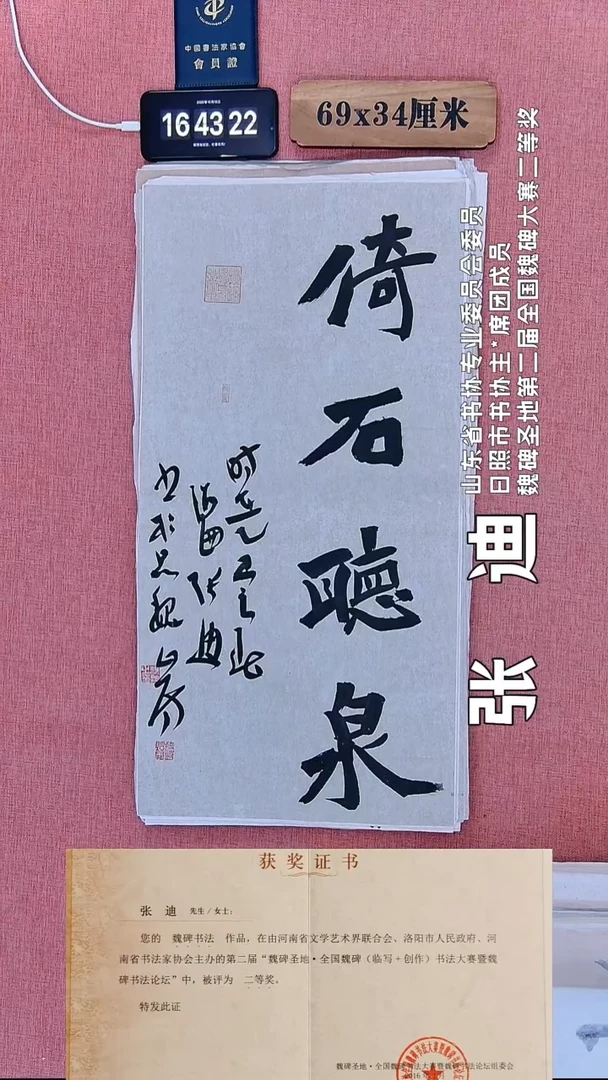 中国书法家协会
會員證
16 43 22
69x34厘米
倚石聽泉
山东省书协专业委员会委员
日照市书协主*席团成员
魏碑圣地第二届全国魏碑大赛二等奖
张 迪
获奖证书
张 迪 先生/女士：
您的 魏碑书法 作品，在由河南省文学艺术界联合会、洛阳市人民政府、河
南省书法家协会主办的第二届“魏碑圣地·全国魏碑（临写+创作）书法大赛暨魏
碑书法论坛”中，被评为 二等奖。
特发此证
魏碑圣地·全国魏碑书法大赛暨魏碑书法论坛组委会